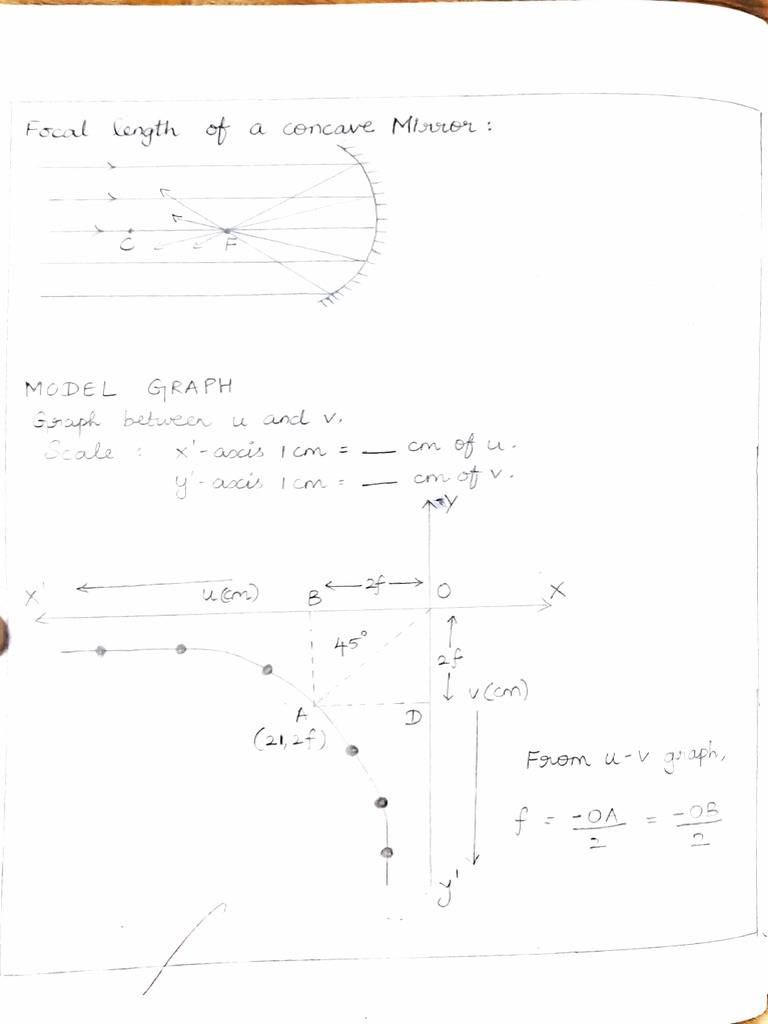 Focal length of a concave Mirror:
C
F
MODEL GRAPH
Graph between u and v.
Scale : x'-axis 1 cm = __ cm of u.
y'-axis 1 cm = __ cm of v.
y
X'
u(cm)
B
2f
O
X
45°
2f
v(cm)
A
D
(21, 2f)
From u-v graph,
f = -OA/2 = -OB/2
y'